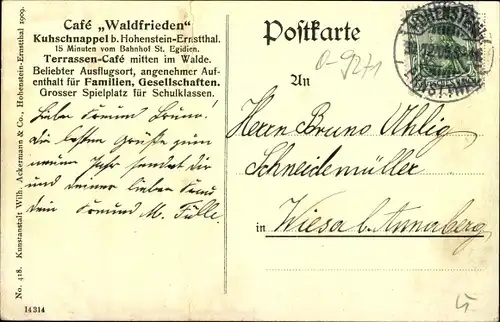 Café „Waldfrieden"
Kuhschnappel b. Hohenstein-Ernstthal.
15 Minuten vom Bahnhof St. Egidien.
Terrassen-Café mitten im Walde.
Beliebter Ausflugsort, angenehmer Auf-
enthalt für Familien, Gesellschaften.
Grosser Spielplatz für Schulklassen.
Lieber Freund Bruno!
Die besten Grüße zum
neuen Jahr sendet dir
und deiner lieben Frau
dein Freund M. Fülle.
Postkarte
An
O-9271
Herrn Bruno Uhlig,
Schneidemüller
in Wiesa b. Annaberg
HOHENSTEIN
No. 418. Kunstanstalt Wilh. Ackermann & Co., Hohenstein-Ernstthal 1909.
14314